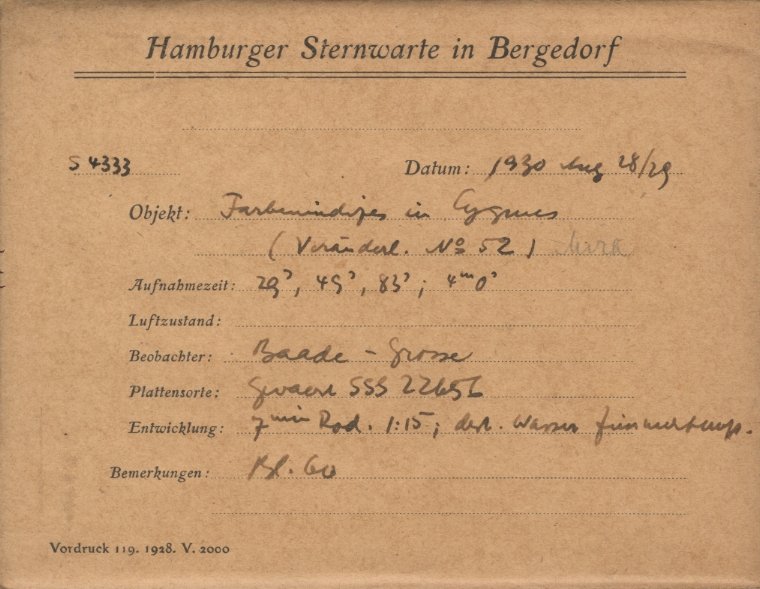 Hamburger Sternwarte in Bergedorf
S 4333 Datum: 1930 Aug 28/29
Objekt: Farbenindizes in Cygnus
(Veränderl. No 52) Mira
Aufnahmezeit: 29s, 49s, 83s; 4m0s
Luftzustand:
Beobachter: Baade - Grosse
Plattensorte: Gevaert SSS 22656
Entwicklung: 7min Rod. 1:15; dest. Wasser Zimmertemp.
Bemerkungen: Bl. 60
Vordruck 119. 1928. V. 2000